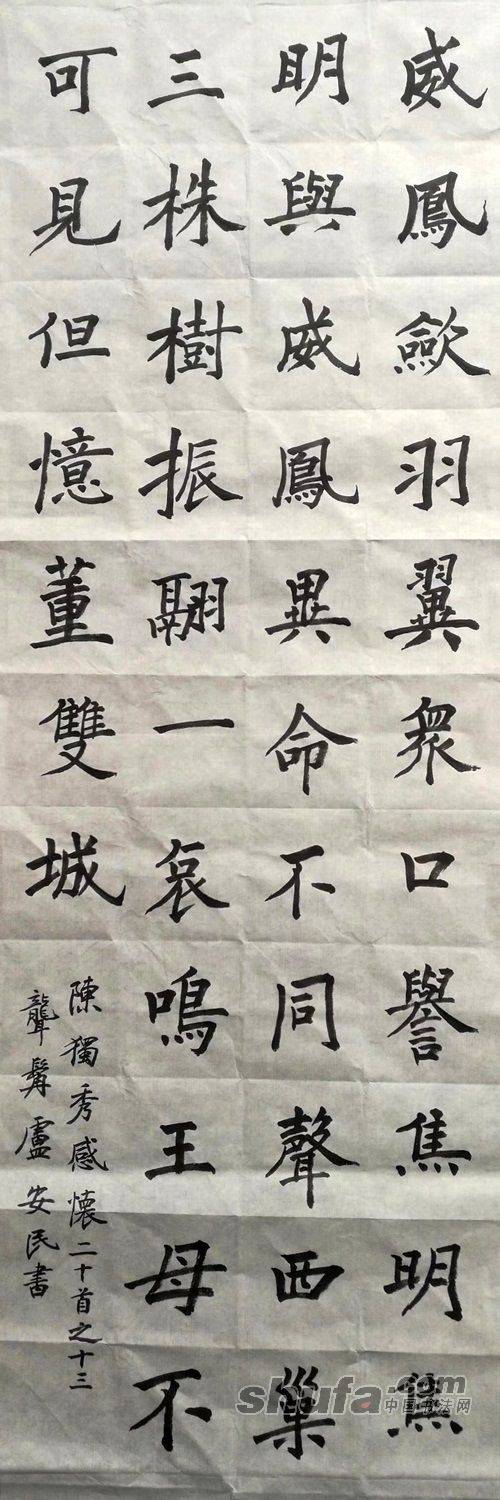 威鳳歛羽翼衆口譽焦明焦
明與威鳳異命不同聲西巢
三株樹振翮一哀鳴王母不
可見但憶董雙城
陳獨秀感懷二十首之十三
聾髯盧安民書
shufa.com
中国书法网